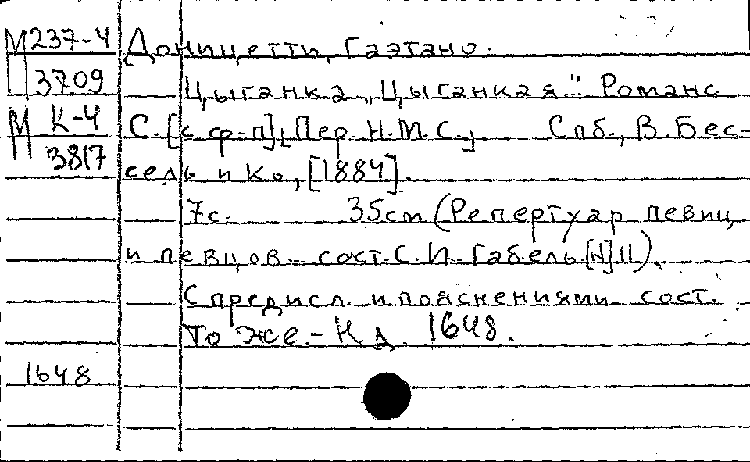 М 237-4 Доницетти, Гаэтано.
3709 Цыганка „Цыганкая." Романс
М К-4 С. [с ф-п], Пер. Н.М.С. Спб., В. Бес-
3817 сель и Ко, [1884].
7с. 35см (Репертуар певиц
и певцов сост. С. И. Габель [N] 11).
С предисл. и пояснениями сост.
То же.- Н д. 1648.
1648